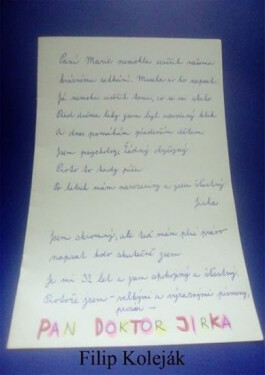 Paní Marie nemohla uvěřit našemu
krásnému setkání. Musela si to napsat
Já nemohu uvěřit tomu, co se mi stalo
Před dvěma lety jsem byl nesmělý kluk
A dnes pomáhám především dětem
Jsem psycholog, Žádný
Proto to tady píšu
Po letech mám narozeniny a jsem šťastný
Jirka
Jsem skromný, ale teď mám plné právo
napsat kdo skutečně jsem
Je mi 32 let a jsem spokojený a šťastný.
Protože jsem - velkými a výraznými písmeny,
prosím -
PAN DOKTOR JIRKA
Filip Koleják